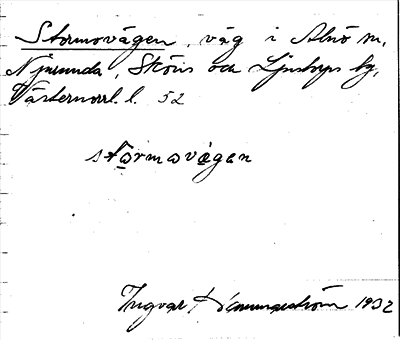 Stormovägen, väg i Alnö m,
Njurunda, Sköns och Ljustorps ty,
Västernorrl. l. 52
stormovägen
Ingvar Hammarström 1932